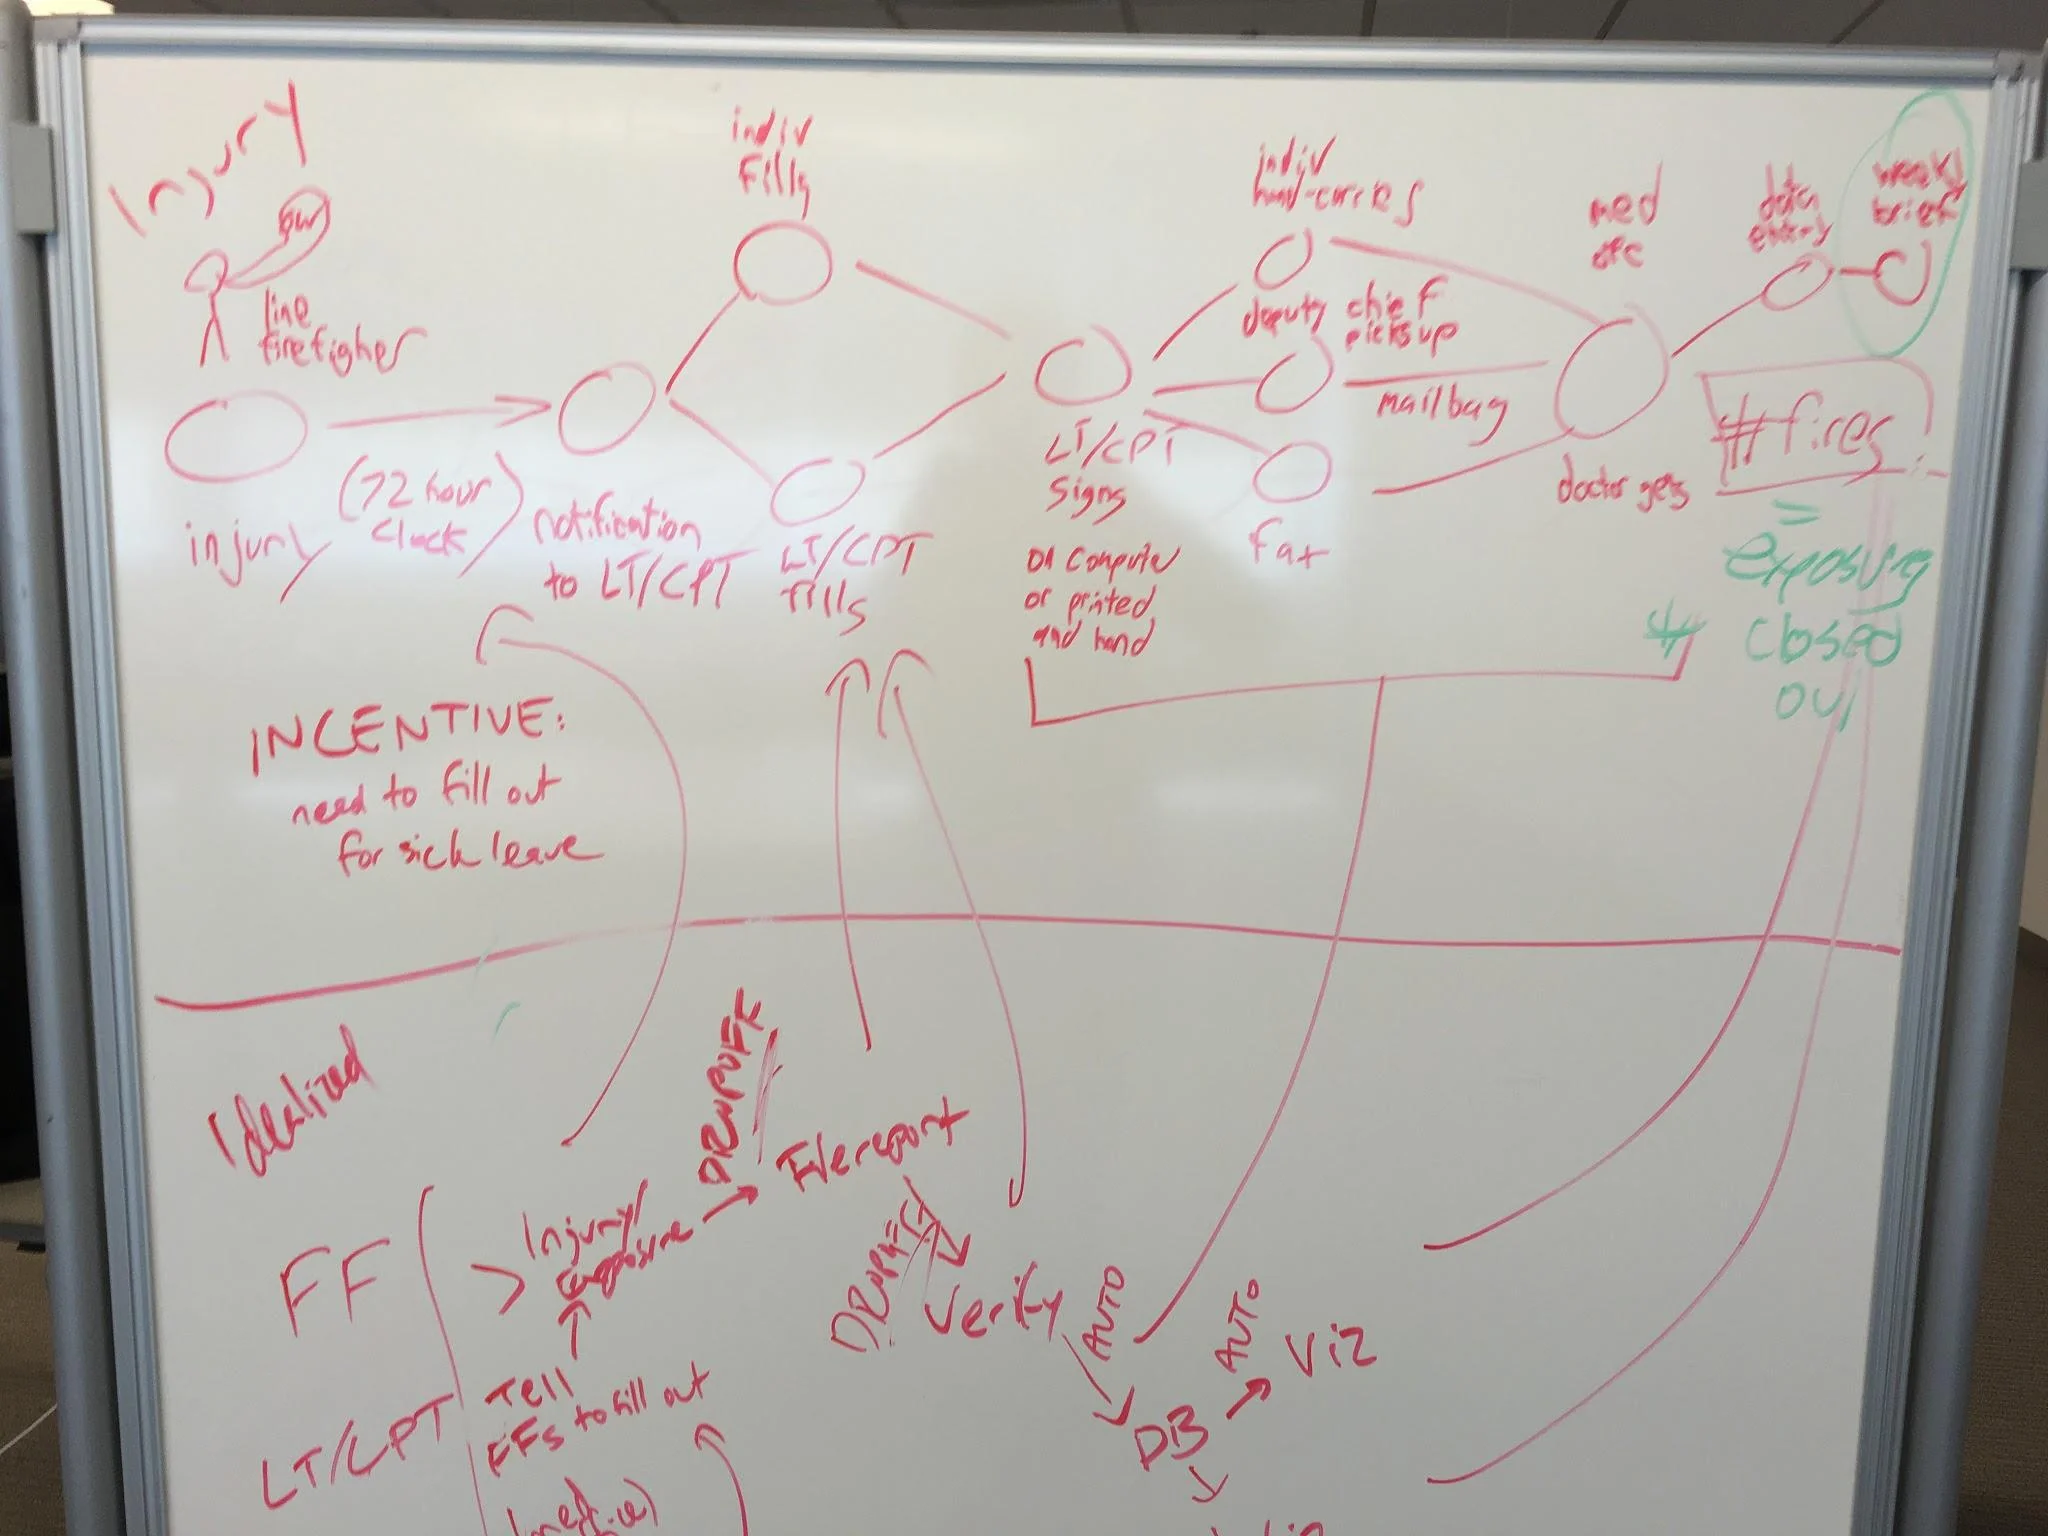 Injury
ow
line
firefigher
indiv
fills
indiv
hand-carries
deputy chief
picks up
mailbag
med
ofc
data
entry
weekly
brief
injury
(72 hour
clock)
notification
to LT/CPT
LT/CPT
fills
LT/CPT
signs
on computer
or printed
and hand
Fax
doctor gets
#fires
=
exposures
closed
out
INCENTIVE:
need to fill out
for sick leave
Idealized
FF
> Injury/
exposure →
File report
Verify
AUTO
AUTO
DB
Viz
LT/CPT
Tell
FFs to fill out